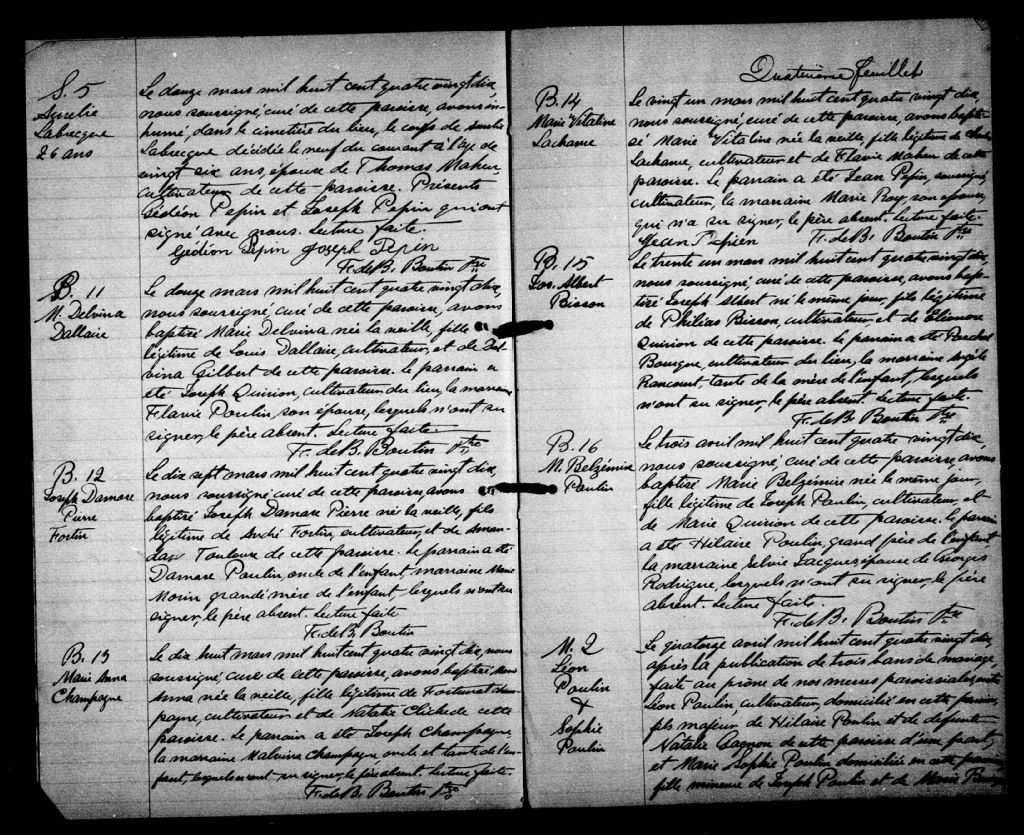 S. 5
Aurelie
Labrecque
26 ans
Le douze mars mil huit cent quatre vingt dix,
nous soussigné, curé de cette paroisse, avons in-
humé, dans le cimetière du lieu, le corps de Aurelie
Labrecque décidée le neuf du courant à l'age de
vingt six ans, épouse de Thomas Maheu,
cultivateur de cette paroisse. Présents
Gédéon Pepin et Joseph Pepin qui ont
signé avec nous. Lecture faite.
Gédéon Pepin Joseph Pepin
F. de B. Boutin Ptre
B. 11
M. Delvina
Dallaire
Le douze mars mil huit cent quatre vingt dix,
nous soussigné, curé de cette paroisse, avons
baptisé Marie Delvina née la veille, fille
légitime de Louis Dallaire, cultivateur, et de Del-
vina Gilbert de cette paroisse. Le parrain a
été Joseph Quirion, cultivateur du lieu, la marraine
Flavie Poulin, son épouse, lesquels n'ont su
signer, le père absent. Lecture faite.
F. de B. Boutin Ptre
B. 12
Joseph Damase
Pierre
Fortin
Le dix sept mars mil huit cent quatre vingt dix,
nous soussigné curé de cette paroisse avons
baptisé Joseph Damase Pierre né la veille, fils
légitime de André Fortin, cultivateur, et de Aman-
da Toulouse de cette paroisse. Le parrain a été
Damase Poulin, oncle de l'enfant, marraine Marie
Morin grand'mère de l'enfant, lesquels n'ont su
signer, le père absent. Lecture faite
F. de B. Boutin
B. 13
Marie Anna
Champagne
Le dix huit mars mil huit cent quatre vingt dix, nous
soussigné, curé de cette paroisse, avons baptisé Marie
Anna née la veille, fille légitime de Fortunat Cham-
pagne, cultivateur et de Natalie Cliche de cette
paroisse. Le parrain a été Joseph Champagne,
la marraine Malvina Champagne oncle et tante de l'en-
fant, lesquels n'ont su signer, le père absent. Lecture faite.
F. de B. Boutin Ptre
Quatrième feuillet
B. 14
Marie Vitaline
Lachance
Le vingt un mars mil huit cent quatre vingt dix,
nous soussigné, curé de cette paroisse, avons bapti-
sé Marie Vitaline née la veille, fille légitime de
Lachance, cultivateur et de Flavie Maheu de cette
paroisse. Le parrain a été Jean Pepin, soussigné,
cultivateur, la marraine Marie Roy, son épouse,
qui n'a su signer, le père absent. Lecture faite.
Jean Pepien F. de B. Boutin Ptre
B. 15
Jos. Albert
Bisson
Le trente un mars mil huit cent quatre vingt dix,
nous soussigné, curé de cette paroisse, avons bap-
tisé Joseph Albert né le même jour, fils légitime
de Philias Bisson, cultivateur, et de Eléonore
Quirion de cette paroisse. Le parrain a été
Bourque, cultivateur du lieu, la marraine Angèle
Rancourt, tante de la mère de l'enfant, lesquels
n'ont su signer, le père absent. Lecture faite.
F. de B. Boutin Ptre
B. 16
M. Belzémire
Poulin
Le trois avril mil huit cent quatre vingt dix,
nous soussigné, curé de cette paroisse, avons
baptisé Marie Belzemire née le même jour,
fille légitime de Joseph Poulin, cultivateur, et
de Marie Quirion de cette paroisse. Le parrain
a été Hilaire Poulin, grand père de l'enfant
la marraine Selvie Jacques épouse de Georges
Rodrigue lesquels n'ont su signer, le père
absent. Lecture faite.
F. de B. Boutin Ptre
M. 2
Léon
Poulin
&
Sophie
Poulin
Le quatorze avril mil huit cent quatre vingt dix,
après la publication de trois bans de mariage
faite au prône de nos messes paroissiales, entre
Léon Poulin, cultivateur, domicilié en cette paroisse,
fils majeur de Hilaire Poulin et de défunte
Natalie Gagnon de cette paroisse d'une part,
et Marie Sophie Poulin domiciliée en cette paroisse
fille mineure de Joseph Poulin et de Marie